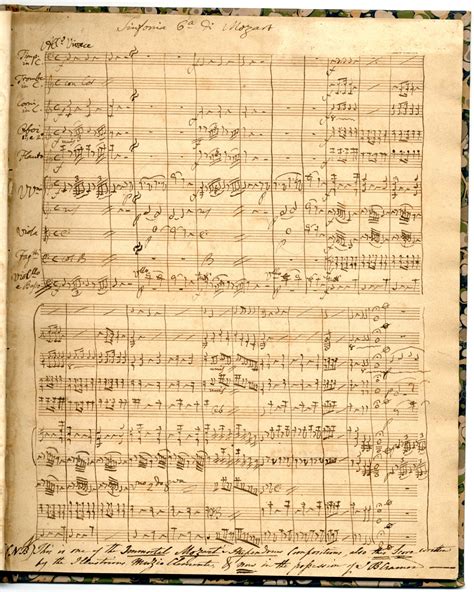 Sinfonia 6.ª di Mozart
All.º Vivace
Timp. in C
Trombe in C.
Corni in C.
Oboi
Flauto
VVni
Viola
Fag.ti
Viollo e Basso
(NB) This is one of the Immortal Mozart's Stupendous Compositions, also this Score written
by the Illustrious Muzio Clementi, & now in the possession of J B Cramer